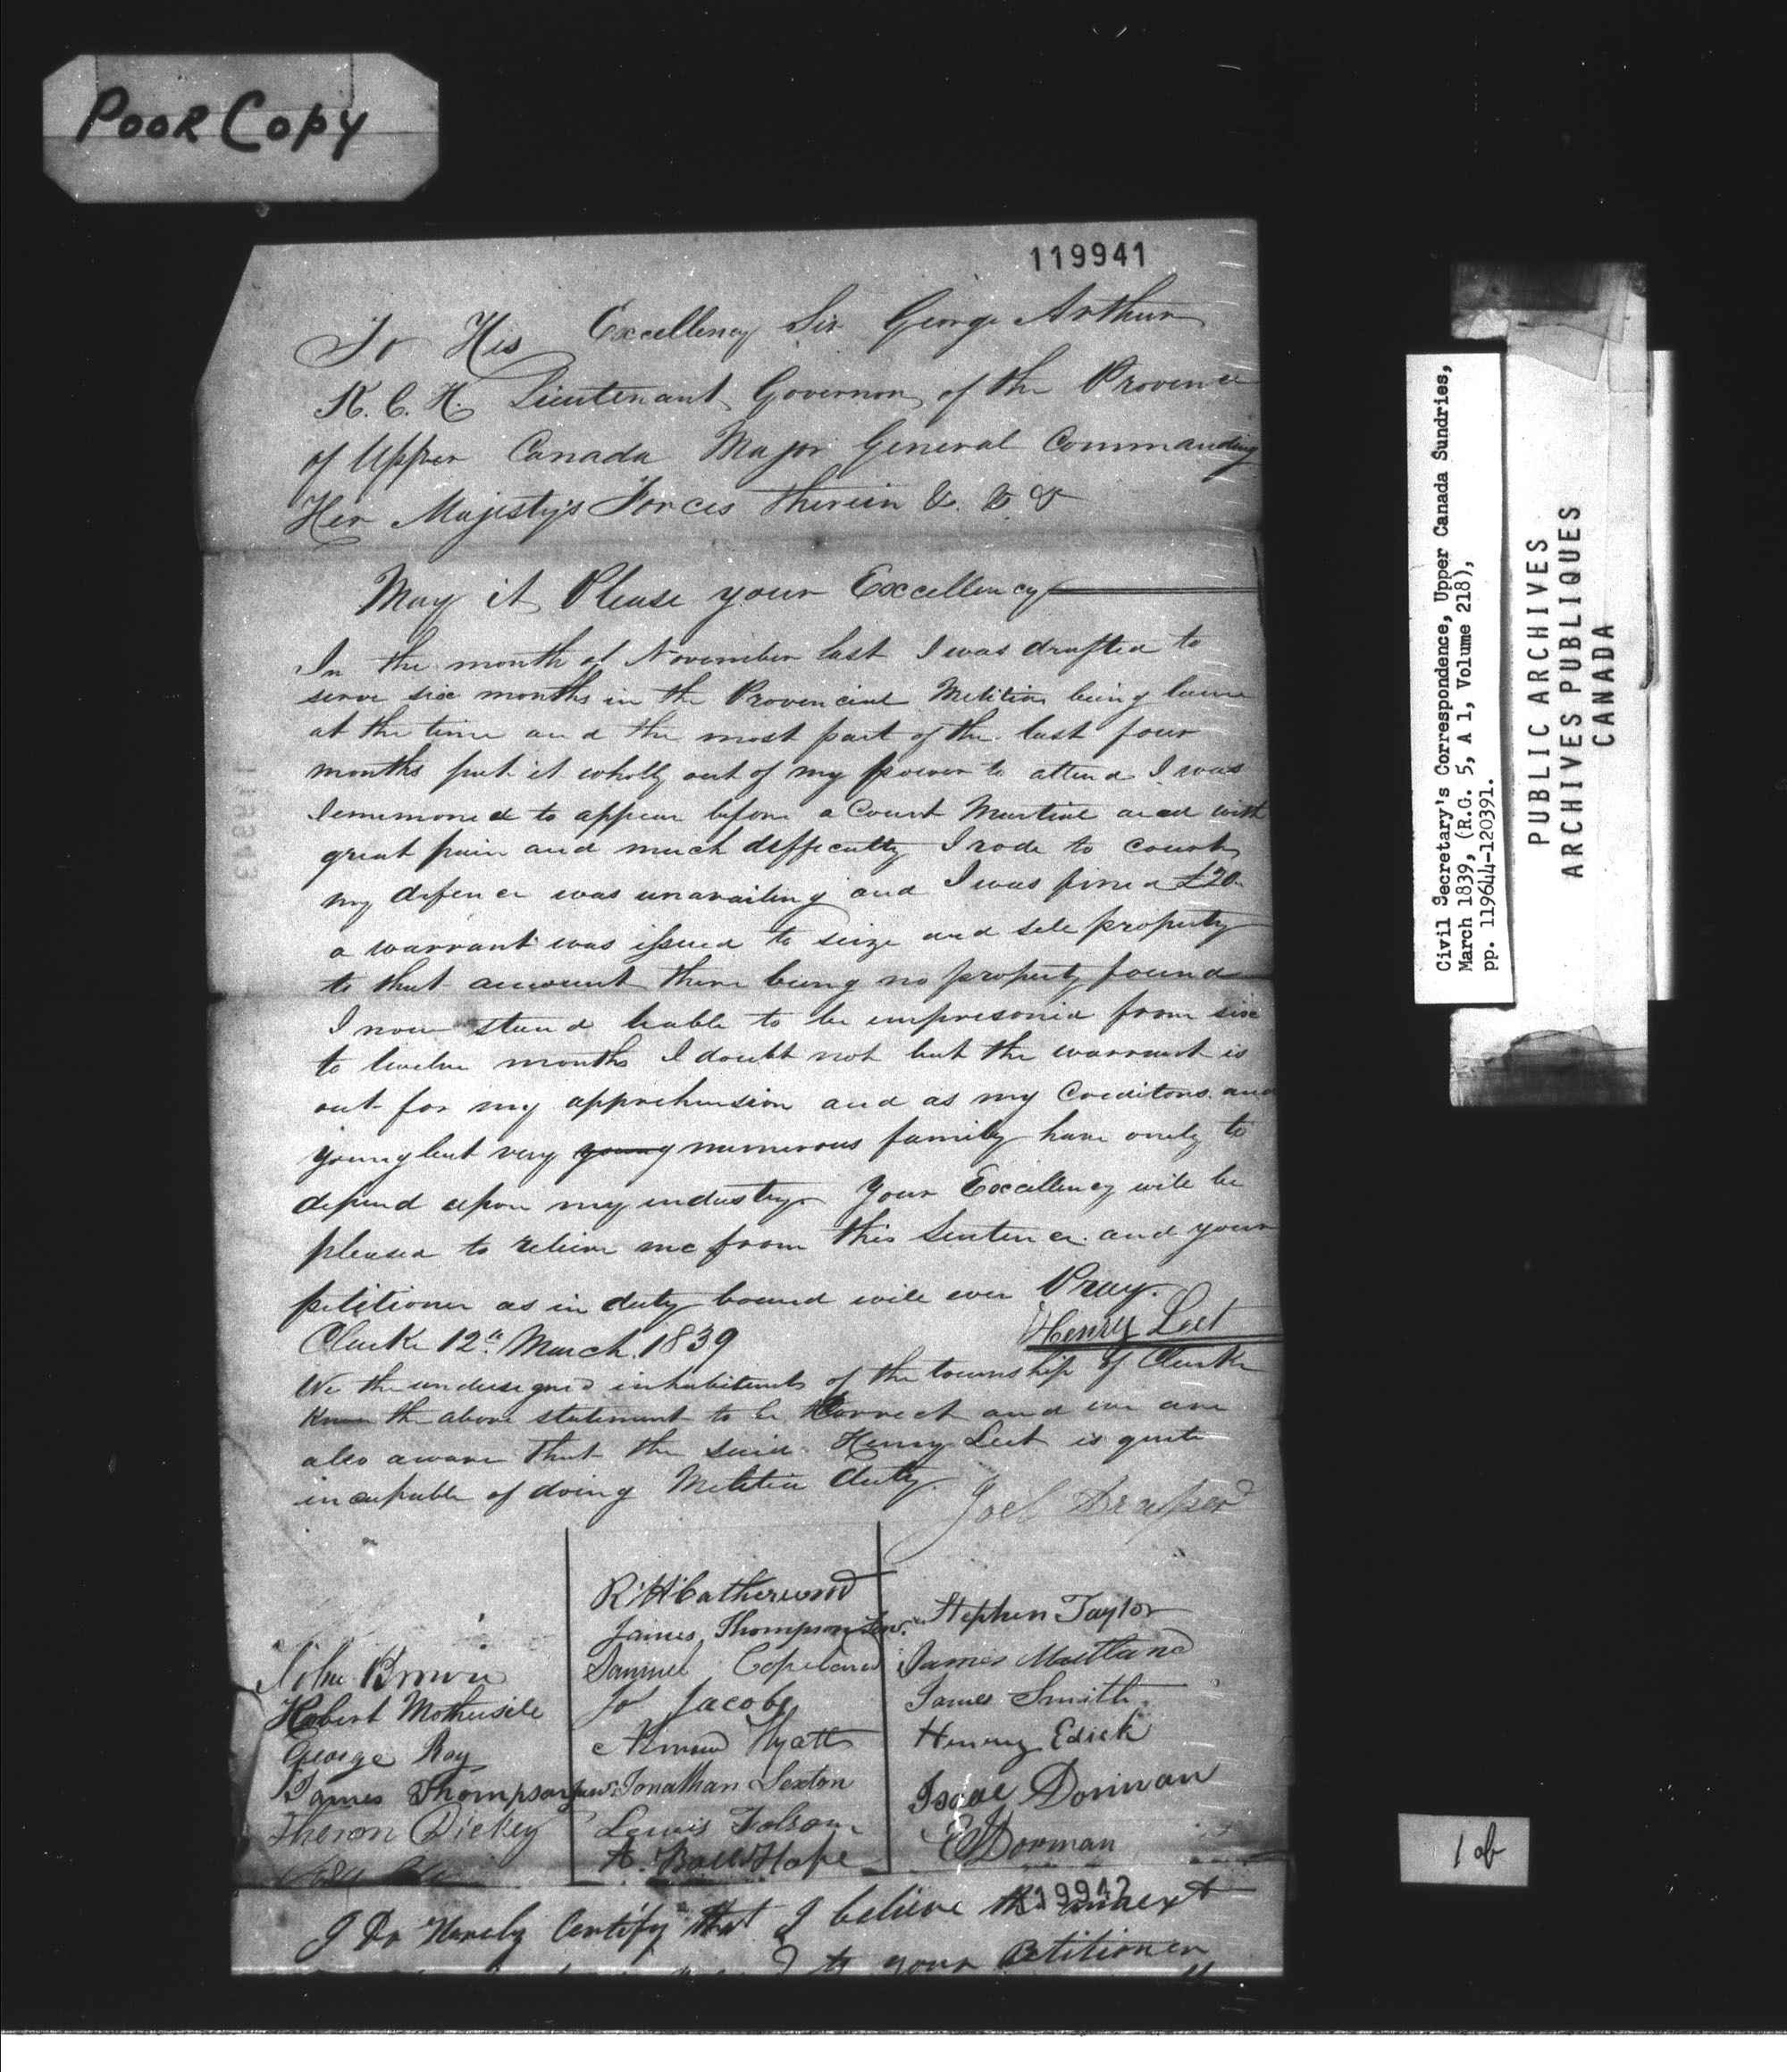 POOR COPY
119941
To His Excellency Sir George Arthur
K. C. H. Lieutenant Governor of the Province
of Upper Canada Major General Commanding
Her Majesty's Forces therein &. & &
May it Please your Excellency
In the month of November last I was drafted to
serve six months in the Provincial Militia being lame
at the time and the most part of the last four
months put it wholly out of my power to attend I was
Summoned to appear before a Court Martial and with
great pain and much difficulty I rode to Court
my defence was unavailing and I was fined £20
a warrant was issued to seize and sele property
to that amount there being no property found
I now stand liable to be impresoned from six
to twelve months I doubt not but the warrant is
out for my apprehension and as my Creditors and
young but very young numerous family have onely to
depend upon my industry. Your Excellency will be
pleased to relieve me from this Sentence and your
petitioner as in duty bound will ever Pray.
Henry Leet
Clarke 12th March 1839
We the undersigned inhabitants of the township of Clarke
Know the above statement to be Correct and we are
also aware that the said Henry Leet is quite
incapable of doing Militia duty.
Joel Draper
John Brown
Robert Mothersile
George Roy
James Thompson Junr
Theron Dickey
R. H. Catherwood
James Thompson Senr.
Samuel Copeland
Jo Jacobs
Wyatt
Jonathan Sexton
Lewis Folsom
A. Hope
Stephen Taylor
James Maitland
James Smith
Henry Edick
Isaac Dorman
E Dorman
119942
I Do Hereby Certify that I believe the annext
to your Petitioner
Civil Secretary's Correspondence, Upper Canada Sundries,
March 1839, (R.G. 5, A 1, Volume 218),
pp. 119644-120391.
PUBLIC ARCHIVES
ARCHIVES PUBLIQUES
CANADA